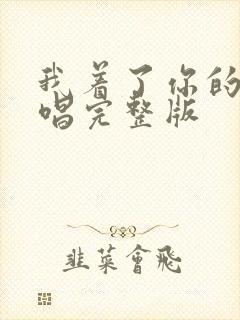 我着了你的
唱完整版
韭菜會飛